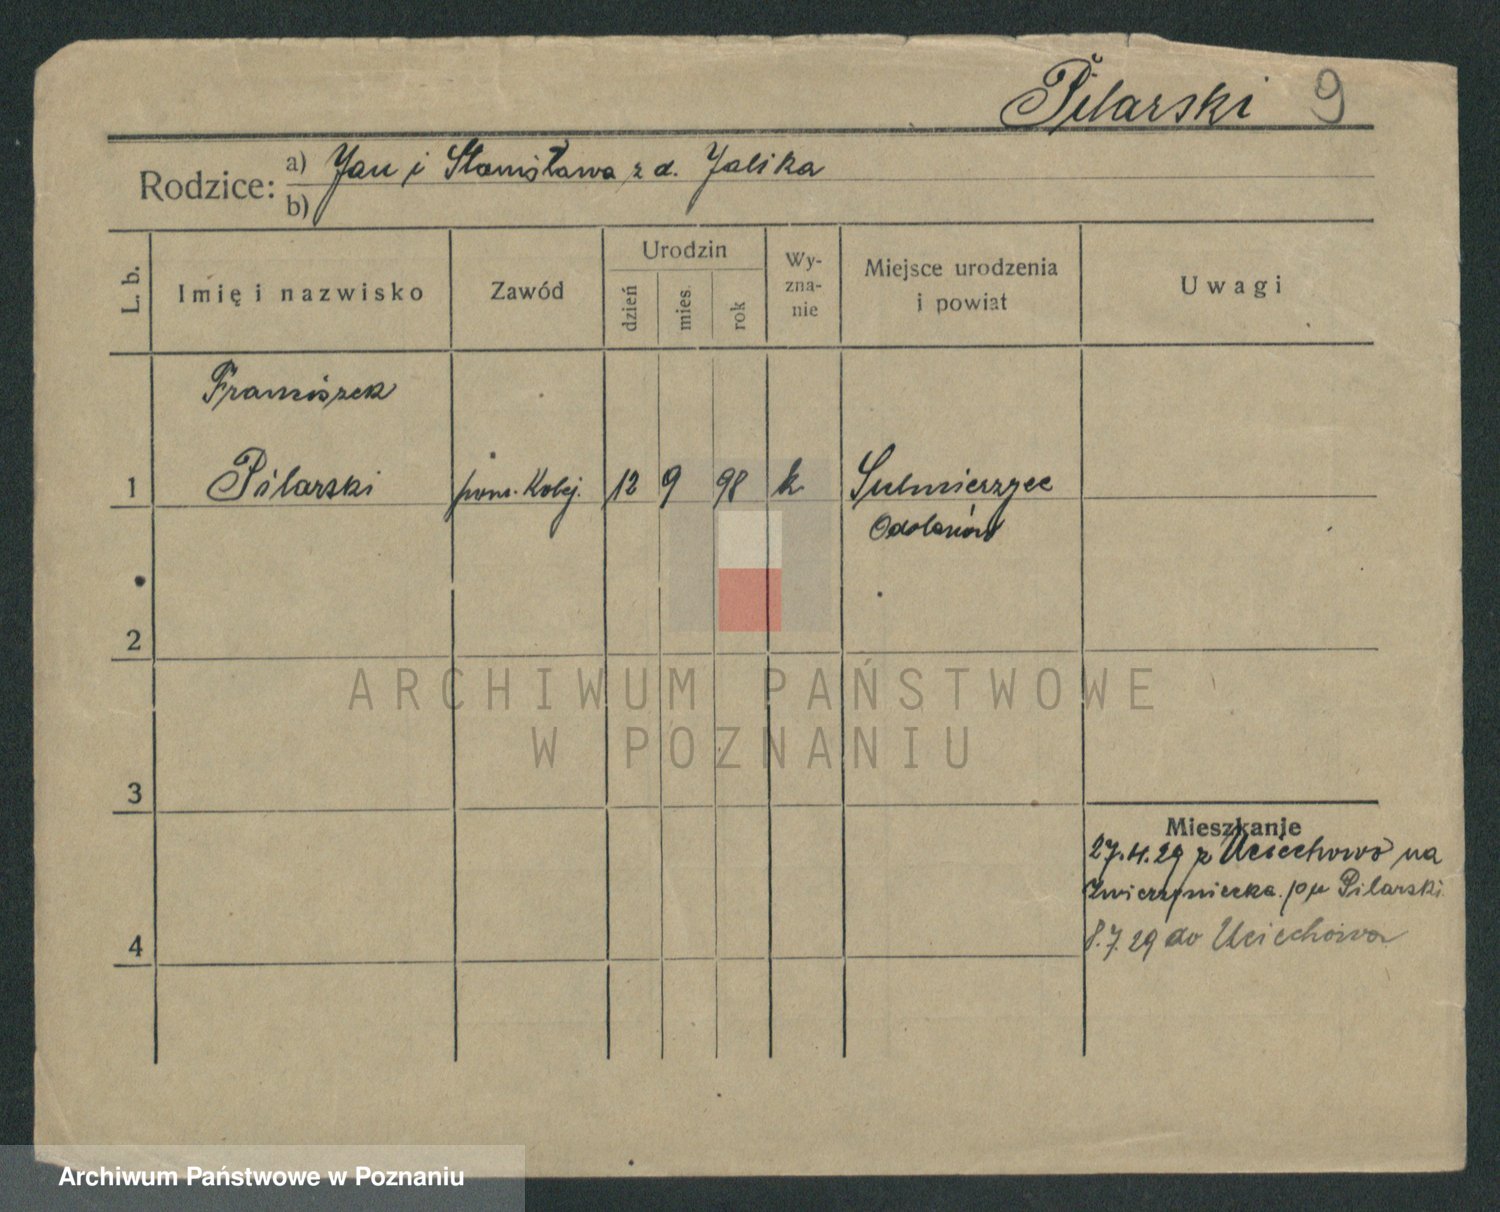 Pilarski 9
Rodzice: a) Jan i Stanisława z d. Jalika
b)
L. b. Imię i nazwisko Zawód Urodzin dzień mies. rok Wy-zna-nie Miejsce urodzenia i powiat Uwagi
Franciszek
1 Pilarski pom. Kolej. 12 9 98 k Sulmierzyce
Odolanów
2
ARCHIWUM PAŃSTWOWE
W POZNANIU
3
Mieszkanie
27.4.29 z Uciechowo na
Zwierzyniecka. p/u Pilarski
4 8.7.29 do Uciechowa
Archiwum Państwowe w Poznaniu